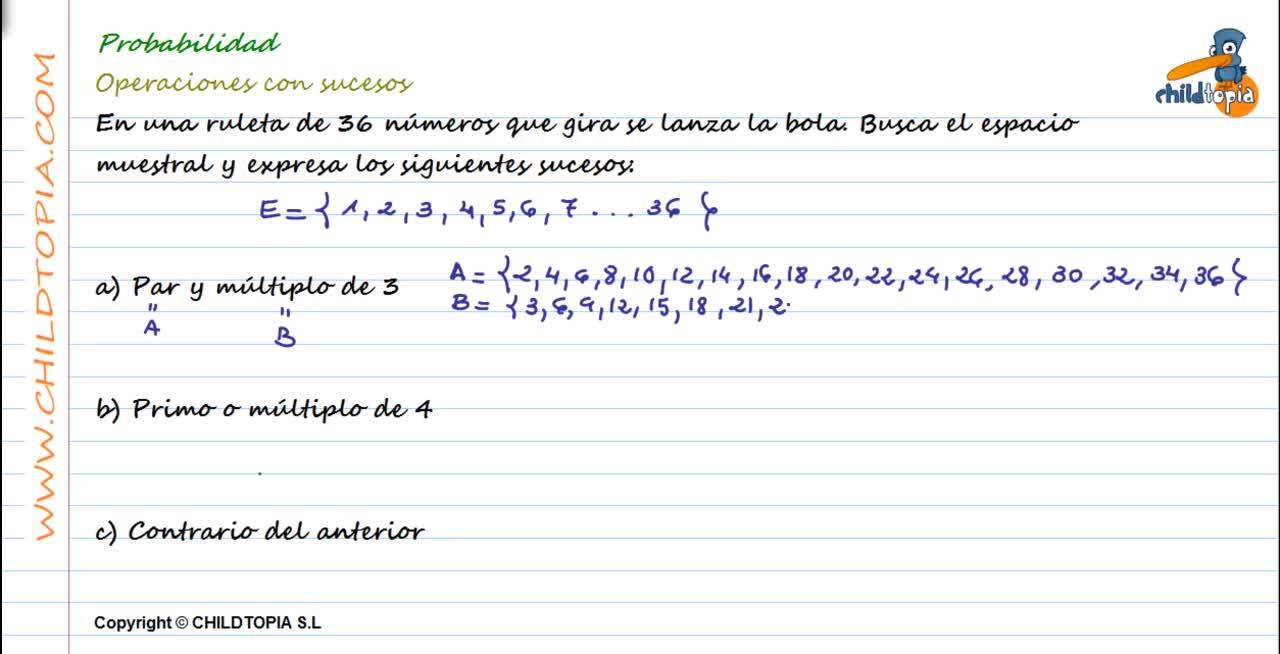 Probabilidad
Operaciones con sucesos
childtopia
En una ruleta de 36 números que gira se lanza la bola. Busca el espacio
muestral y expresa los siguientes sucesos:
E = { 1, 2, 3, 4, 5, 6, 7 ... 36 }
a) Par y múltiplo de 3
A = {2, 4, 6, 8, 10, 12, 14, 16, 18, 20, 22, 24, 26, 28, 30, 32, 34, 36 }
B = { 3, 6, 9, 12, 15, 18, 21, 2
" "
A B
b) Primo o múltiplo de 4
c) Contrario del anterior
Copyright © CHILDTOPIA S.L
WWW.CHILDTOPIA.COM